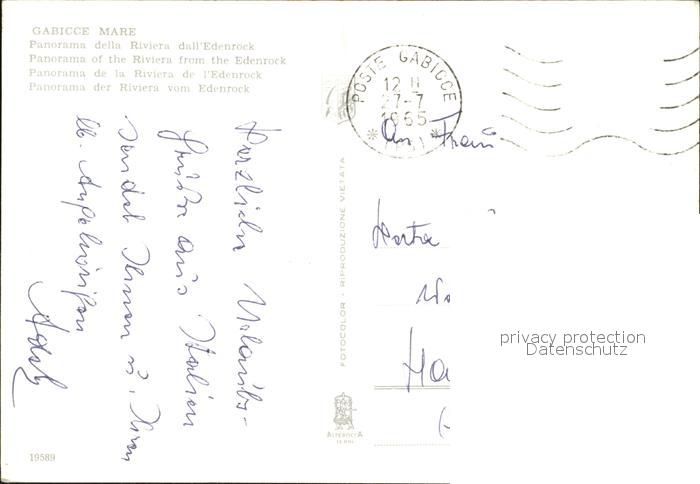 GABICCE MARE
Panorama della Riviera dall'Edenrock
Panorama of the Riviera from the Edenrock
Panorama de la Riviera de l'Edenrock
Panorama der Riviera vom Edenrock
POSTE GABICCE
12 H
27-7
1965
An Frau
Herta
Ha
Herzliche Urlaubs-
Grüße aus Italien
sendet Ihnen u. Ihren
lb. Angehörigen
FOTOCOLOR - RIPRODUZIONE VIETATA
ALTEROCCA
TERNI
19589
privacy protection
Datenschutz